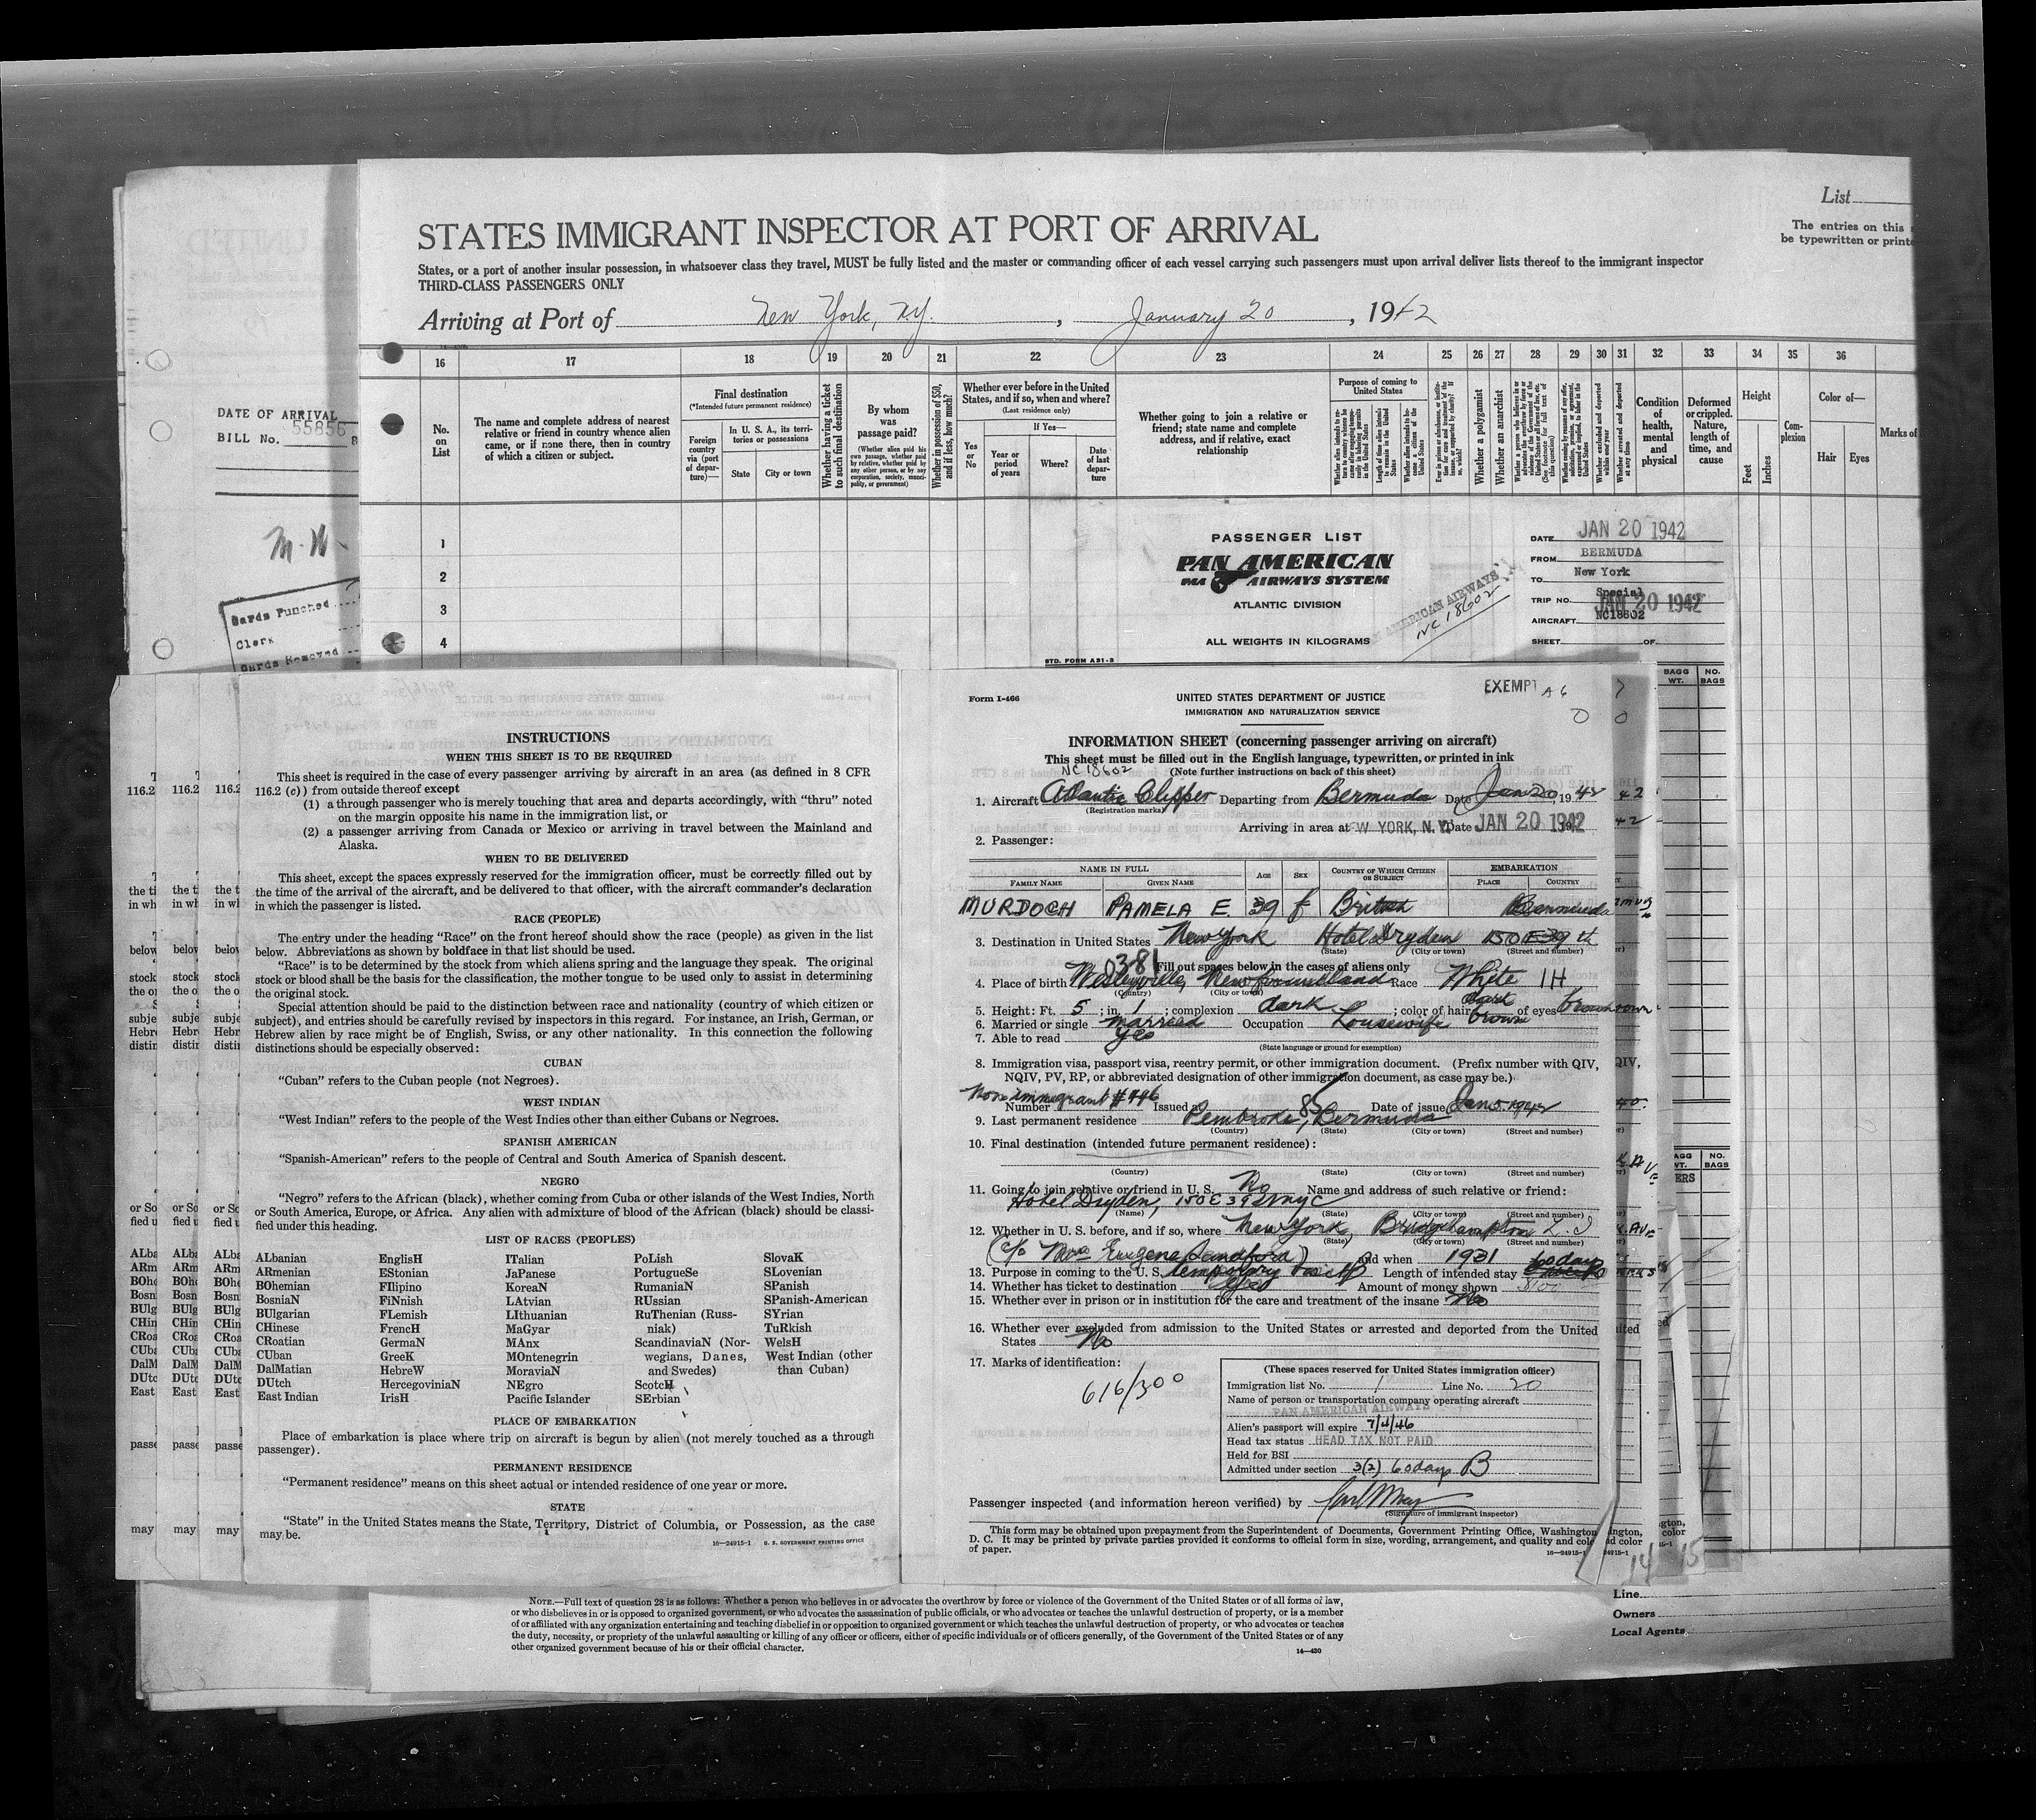 STATES IMMIGRANT INSPECTOR AT PORT OF ARRIVAL
List
The entries on this
be typewritten or printe
States, or a port of another insular possession, in whatsoever class they travel, MUST be fully listed and the master or commanding officer of each vessel carrying such passengers must upon arrival deliver lists thereof to the immigrant inspector
THIRD-CLASS PASSENGERS ONLY
Arriving at Port of New York, N.Y. , January 20 , 1942
16 17 18 19 20 21 22 23 24 25 26 27 28 29 30 31 32 33 34 35 36
No. on List
The name and complete address of nearest relative or friend in country whence alien came, or if none there, then in country of which a citizen or subject.
Final destination
(*Intended future permanent residence)
Foreign country via (port of departure)—
In U. S. A., its territories or possessions
State
City or town
Whether having a ticket to such final destination
By whom was passage paid?
(Whether alien paid his own passage, whether paid by relative, whether paid by any other person, or by any corporation, society, municipality, or government)
Whether in possession of $50, and if less, how much?
Whether ever before in the United States, and if so, when and where?
(Last residence only)
Yes or No
If Yes—
Year or period of years
Where?
Date of last departure
Whether going to join a relative or friend; state name and complete address, and if relative, exact relationship
Purpose of coming to United States
Whether a polygamist
Whether an anarchist
Condition of health, mental and physical
Deformed or crippled. Nature, length of time, and cause
Height
Feet
Inches
Complexion
Color of—
Hair
Eyes
Marks of
DATE OF ARRIVAL
BILL No. 55856
Cards Punched
Clerk
Cards Removed
1
2
3
4
PASSENGER LIST
PAN AMERICAN
PAA AIRWAYS SYSTEM
ATLANTIC DIVISION
ALL WEIGHTS IN KILOGRAMS
STD. FORM A31-3
AMERICAN AIRWAYS
NC 18602
DATE JAN 20 1942
FROM BERMUDA
TO New York
TRIP NO. Special
JAN 20 1942
AIRCRAFT NC18602
SHEET OF
BAGG WT.
NO. BAGS
INSTRUCTIONS
WHEN THIS SHEET IS TO BE REQUIRED
This sheet is required in the case of every passenger arriving by aircraft in an area (as defined in 8 CFR
116.2 (c)) from outside thereof except
(1) a through passenger who is merely touching that area and departs accordingly, with "thru" noted
on the margin opposite his name in the immigration list, or
(2) a passenger arriving from Canada or Mexico or arriving in travel between the Mainland and
Alaska.
WHEN TO BE DELIVERED
This sheet, except the spaces expressly reserved for the immigration officer, must be correctly filled out by
the time of the arrival of the aircraft, and be delivered to that officer, with the aircraft commander's declaration
in which the passenger is listed.
RACE (PEOPLE)
The entry under the heading "Race" on the front hereof should show the race (people) as given in the list
below. Abbreviations as shown by boldface in that list should be used.
"Race" is to be determined by the stock from which aliens spring and the language they speak. The original
stock or blood shall be the basis for the classification, the mother tongue to be used only to assist in determining
the original stock.
Special attention should be paid to the distinction between race and nationality (country of which citizen or
subject), and entries should be carefully revised by inspectors in this regard. For instance, an Irish, German, or
Hebrew alien by race might be of English, Swiss, or any other nationality. In this connection the following
distinctions should be especially observed:
CUBAN
"Cuban" refers to the Cuban people (not Negroes).
WEST INDIAN
"West Indian" refers to the people of the West Indies other than either Cubans or Negroes.
SPANISH AMERICAN
"Spanish-American" refers to the people of Central and South America of Spanish descent.
NEGRO
"Negro" refers to the African (black), whether coming from Cuba or other islands of the West Indies, North
or South America, Europe, or Africa. Any alien with admixture of blood of the African (black) should be classi-
fied under this heading.
LIST OF RACES (PEOPLES)
ALbanian EnglisH ITalian PoLish SlovaK
ARmenian EStonian JaPanese PortugueSe SLovenian
BOhemian FIlipino KoreaN RumaniaN SPanish
BosniaN FiNnish LAtvian RUssian SPanish-American
BUlgarian FLemish LIthuanian RuThenian (Russ- SYrian
CHinese FrencH MaGyar niak) TuRkish
CRoatian GermaN MAnx ScandinaviaN (Nor- WelsH
CUban GreeK MOntenegrin wegians, Danes, West Indian (other
DalMatian HebreW MoraviaN and Swedes) than Cuban)
DUtch HercegoviniaN NEgro ScotcH
East Indian IrisH Pacific Islander SErbian
PLACE OF EMBARKATION
Place of embarkation is place where trip on aircraft is begun by alien (not merely touched as a through
passenger).
PERMANENT RESIDENCE
"Permanent residence" means on this sheet actual or intended residence of one year or more.
STATE
"State" in the United States means the State, Territory, District of Columbia, or Possession, as the case
may be.
16—24915-1 U. S. GOVERNMENT PRINTING OFFICE
Form I-466
UNITED STATES DEPARTMENT OF JUSTICE
IMMIGRATION AND NATURALIZATION SERVICE
EXEMPT A6
INFORMATION SHEET (concerning passenger arriving on aircraft)
This sheet must be filled out in the English language, typewritten, or printed in ink
(Note further instructions on back of this sheet)
NC 18602
1. Aircraft Atlantic Clipper Departing from Bermuda Date Jan 20 1942
(Registration marks)
Arriving in area at EW YORK, N. Y. Date JAN 20 1942
2. Passenger:
NAME IN FULL AGE SEX COUNTRY OF WHICH CITIZEN OR SUBJECT EMBARKATION
FAMILY NAME GIVEN NAME PLACE COUNTRY
MURDOCH PAMELA E. 39 f British Bermuda
3. Destination in United States New York Hotel Dryden 150 E 39 th
(State) (City or town) (Street and number)
0381 Fill out spaces below in the cases of aliens only
4. Place of birth Wesleyville, Newfoundland Race White IH
(Country) (City or town)
5. Height: Ft. 5 ; in. 1 ; complexion dark ; color of hair dark brown of eyes brown
6. Married or single married Occupation housewife
7. Able to read yes
(State language or ground for exemption)
8. Immigration visa, passport visa, reentry permit, or other immigration document. (Prefix number with QIV,
NQIV, PV, RP, or abbreviated designation of other immigration document, as case may be.)
Non immigrant #446
Number Issued at Date of issue Jan 5 1942
9. Last permanent residence Pembroke, Bermuda 85
(Country) (State) (City or town) (Street and number)
10. Final destination (intended future permanent residence):
(Country) (State) (City or town) (Street and number)
11. Going to join relative or friend in U. S. No Name and address of such relative or friend:
Hotel Dryden, 150 E 39 St NYC
(Name) (State) (City or town) (Street and number)
12. Whether in U. S. before, and if so, where New York, Bridgehampton L. I
(State) (City or town) (Street and number)
(c/o Mrs Eugene Sandford) and when 1931
13. Purpose in coming to the U. S. temporary visit Length of intended stay 60 days
14. Whether has ticket to destination yes Amount of money shown
15. Whether ever in prison or in institution for the care and treatment of the insane No
16. Whether ever excluded from admission to the United States or arrested and deported from the United
States No
17. Marks of identification:
616/300
(These spaces reserved for United States immigration officer)
Immigration list No. 1 Line No. 20
Name of person or transportation company operating aircraft
PAN AMERICAN AIRWAYS
Alien's passport will expire 7/4/46
Head tax status HEAD TAX NOT PAID
Held for BSI
Admitted under section 3(2) 60 days B
Passenger inspected (and information hereon verified) by
(Signature of immigrant inspector)
This form may be obtained upon prepayment from the Superintendent of Documents, Government Printing Office, Washington
D. C. It may be printed by private parties provided it conforms to official form in size, wording, arrangement, and quality and color
of paper.
16—24915-1
14 15
NOTE.—Full text of question 28 is as follows: Whether a person who believes in or advocates the overthrow by force or violence of the Government of the United States or of all forms of law,
or who disbelieves in or is opposed to organized government, or who advocates the assassination of public officials, or who advocates or teaches the unlawful destruction of property, or is a member
of or affiliated with any organization entertaining and teaching disbelief in or opposition to organized government or which teaches the unlawful destruction of property, or who advocates or teaches
the duty, necessity, or propriety of the unlawful assaulting or killing of any officer or officers, either of specific individuals or of officers generally, of the Government of the United States or of any
other organized government because of his or their official character.
14—430
Line
Owners
Local Agents